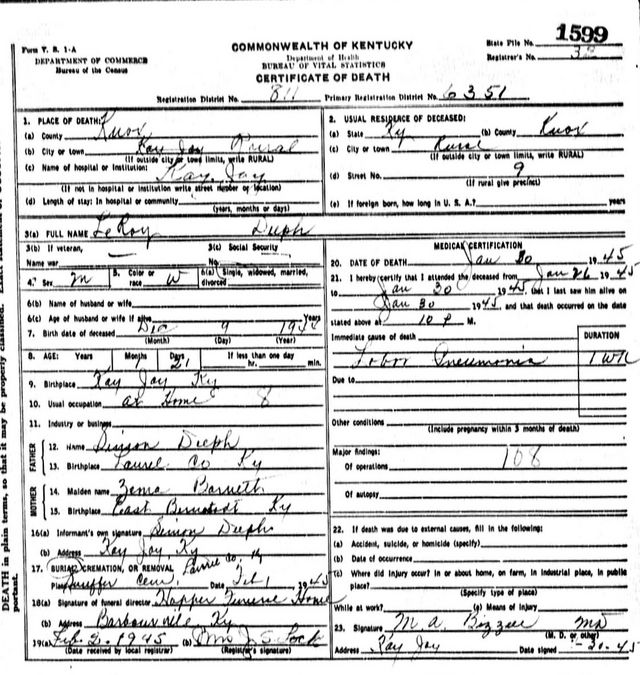 1599
Form V. S. 1-A
DEPARTMENT OF COMMERCE
Bureau of the Census
COMMONWEALTH OF KENTUCKY
Department of Health
BUREAU OF VITAL STATISTICS
CERTIFICATE OF DEATH
State File No.
Registrar's No.
Registration District No. 811 Primary Registration District No. 6351
1. PLACE OF DEATH:
(a) County Knox
(b) City or town Kay Jay Rural
(If outside city or town limits, write RURAL)
(c) Name of hospital or institution:
Kay Jay
(If not in hospital or institution write street number or location)
(d) Length of stay: In hospital or community
(years, months or days)
2. USUAL RESIDENCE OF DECEASED:
(a) State Ky (b) County Knox
(c) City or town Rural
(If outside city or town limits, write RURAL)
(d) Street No. 9
(If rural give precinct)
(e) If foreign born, how long in U. S. A.? years
3(a) FULL NAME LeRoy
3(b) If veteran,
Name war
3(c) Social Security
No.
4. Sex M 5. Color or race W 6(a) Single, widowed, married, divorced
6(b) Name of husband or wife
6(c) Age of husband or wife if alive Years
7. Birth date of deceased Dec 9
(Month) (Day) (Year)
8. AGE: Years Months Days If less than one day
1 21 hr. min.
9. Birthplace Kay Jay Ky
10. Usual occupation at Home 8
11. Industry or business
FATHER
12. Name Simon
13. Birthplace Laurel Co Ky
MOTHER
14. Maiden name Barnett
15. Birthplace East Bernstadt Ky
16(a) Informant's own signature Simon
(b) Address Kay Jay Ky
17. BURIAL, CREMATION, OR REMOVAL Laurel Co, Ky
Place Cem. Date Feb 1 1945
18(a) Signature of funeral director Hopper Funeral Home
(b) Address Barbourville, Ky
19(a) Feb-2-1945 (b) Mrs J. S. Lock
(Date received by local registrar) (Registrar's signature)
MEDICAL CERTIFICATION
20. DATE OF DEATH Jan 30 1945
21. I hereby certify that I attended the deceased from Jan 26 1945
to Jan 30 1945, that I last saw him alive on
Jan 30 1945, and that death occurred on the date
stated above at 10 P M.
Immediate cause of death DURATION
Lobar Pneumonia 1 WK
Due to
Other conditions
(Include pregnancy within 3 months of death)
Major findings:
Of operations 108
Of autopsy
22. If death was due to external causes, fill in the following:
(a) Accident, suicide, or homicide (specify)
(b) Date of occurrence
(c) Where did injury occur? In or about home, on farm, in industrial place, in public
place?
(Specify type of place)
While at work? (e) Means of injury
23. Signature M. A. MD
(M. D. or other)
Address Kay Jay Date signed
DEATH in plain terms, so that it may be properly classified.
portant.